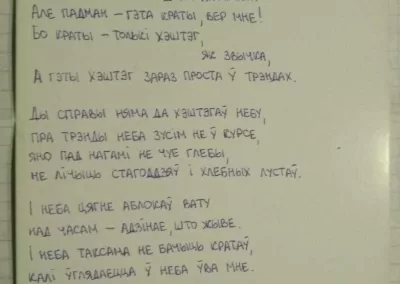 АЛЕ ПАДМАН – ГЭТА КРАТЫ, ВЕР МНЕ!
БО КРАТЫ – ТОЛЬКІ ХЭШТЭГ,
ЯК ЗВЫЧКА,
А ГЭТЫ ХЭШТЭГ ЗАРАЗ ПРОСТА Ў ТРЭНДАХ.
ДЫ СПРАВЫ НЯМА ДА ХЭШТЭГАЎ НЕБУ,
ПРА ТРЭНДЫ НЕБА ЗУСІМ НЕ Ў КУРСЕ,
ЯНО ПАД НАГАМІ НЕ ЧУЕ ГЛЕБЫ,
НЕ ЛІЧЫЦЬ СТАГОДДЗЯЎ І ХЛЕБНЫХ ЛУСТАЎ.
І НЕБА ЦЯГНЕ АБЛОКАЎ ВАТУ
НАД ЧАСАМ – АДЗІНАЕ, ШТО ЖЫВЕ.
І НЕБА ТАКСАМА НЕ БАЧЫЦЬ КРАТАЎ,
КАЛІ ЎГЛЯДАЕЦЦА Ў НЕБА ЎВА МНЕ.